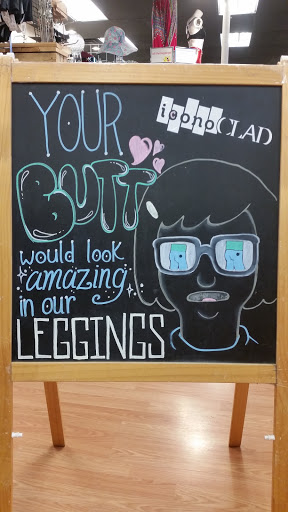 YOUR
iconoCLAD
BUTT
would look
amazing
in our
LEGGINGS